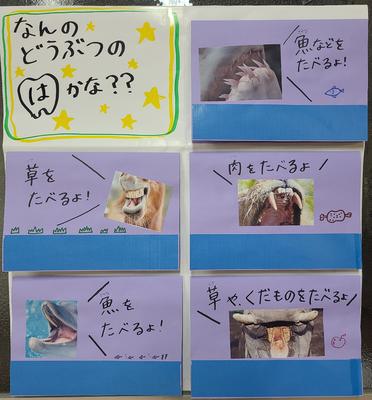 なんの
どうぶつの
は かな??
魚などを
たべるよ!
草を
たべるよ!
肉をたべるよ
魚を
たべるよ!
草や、くだものをたべるよ